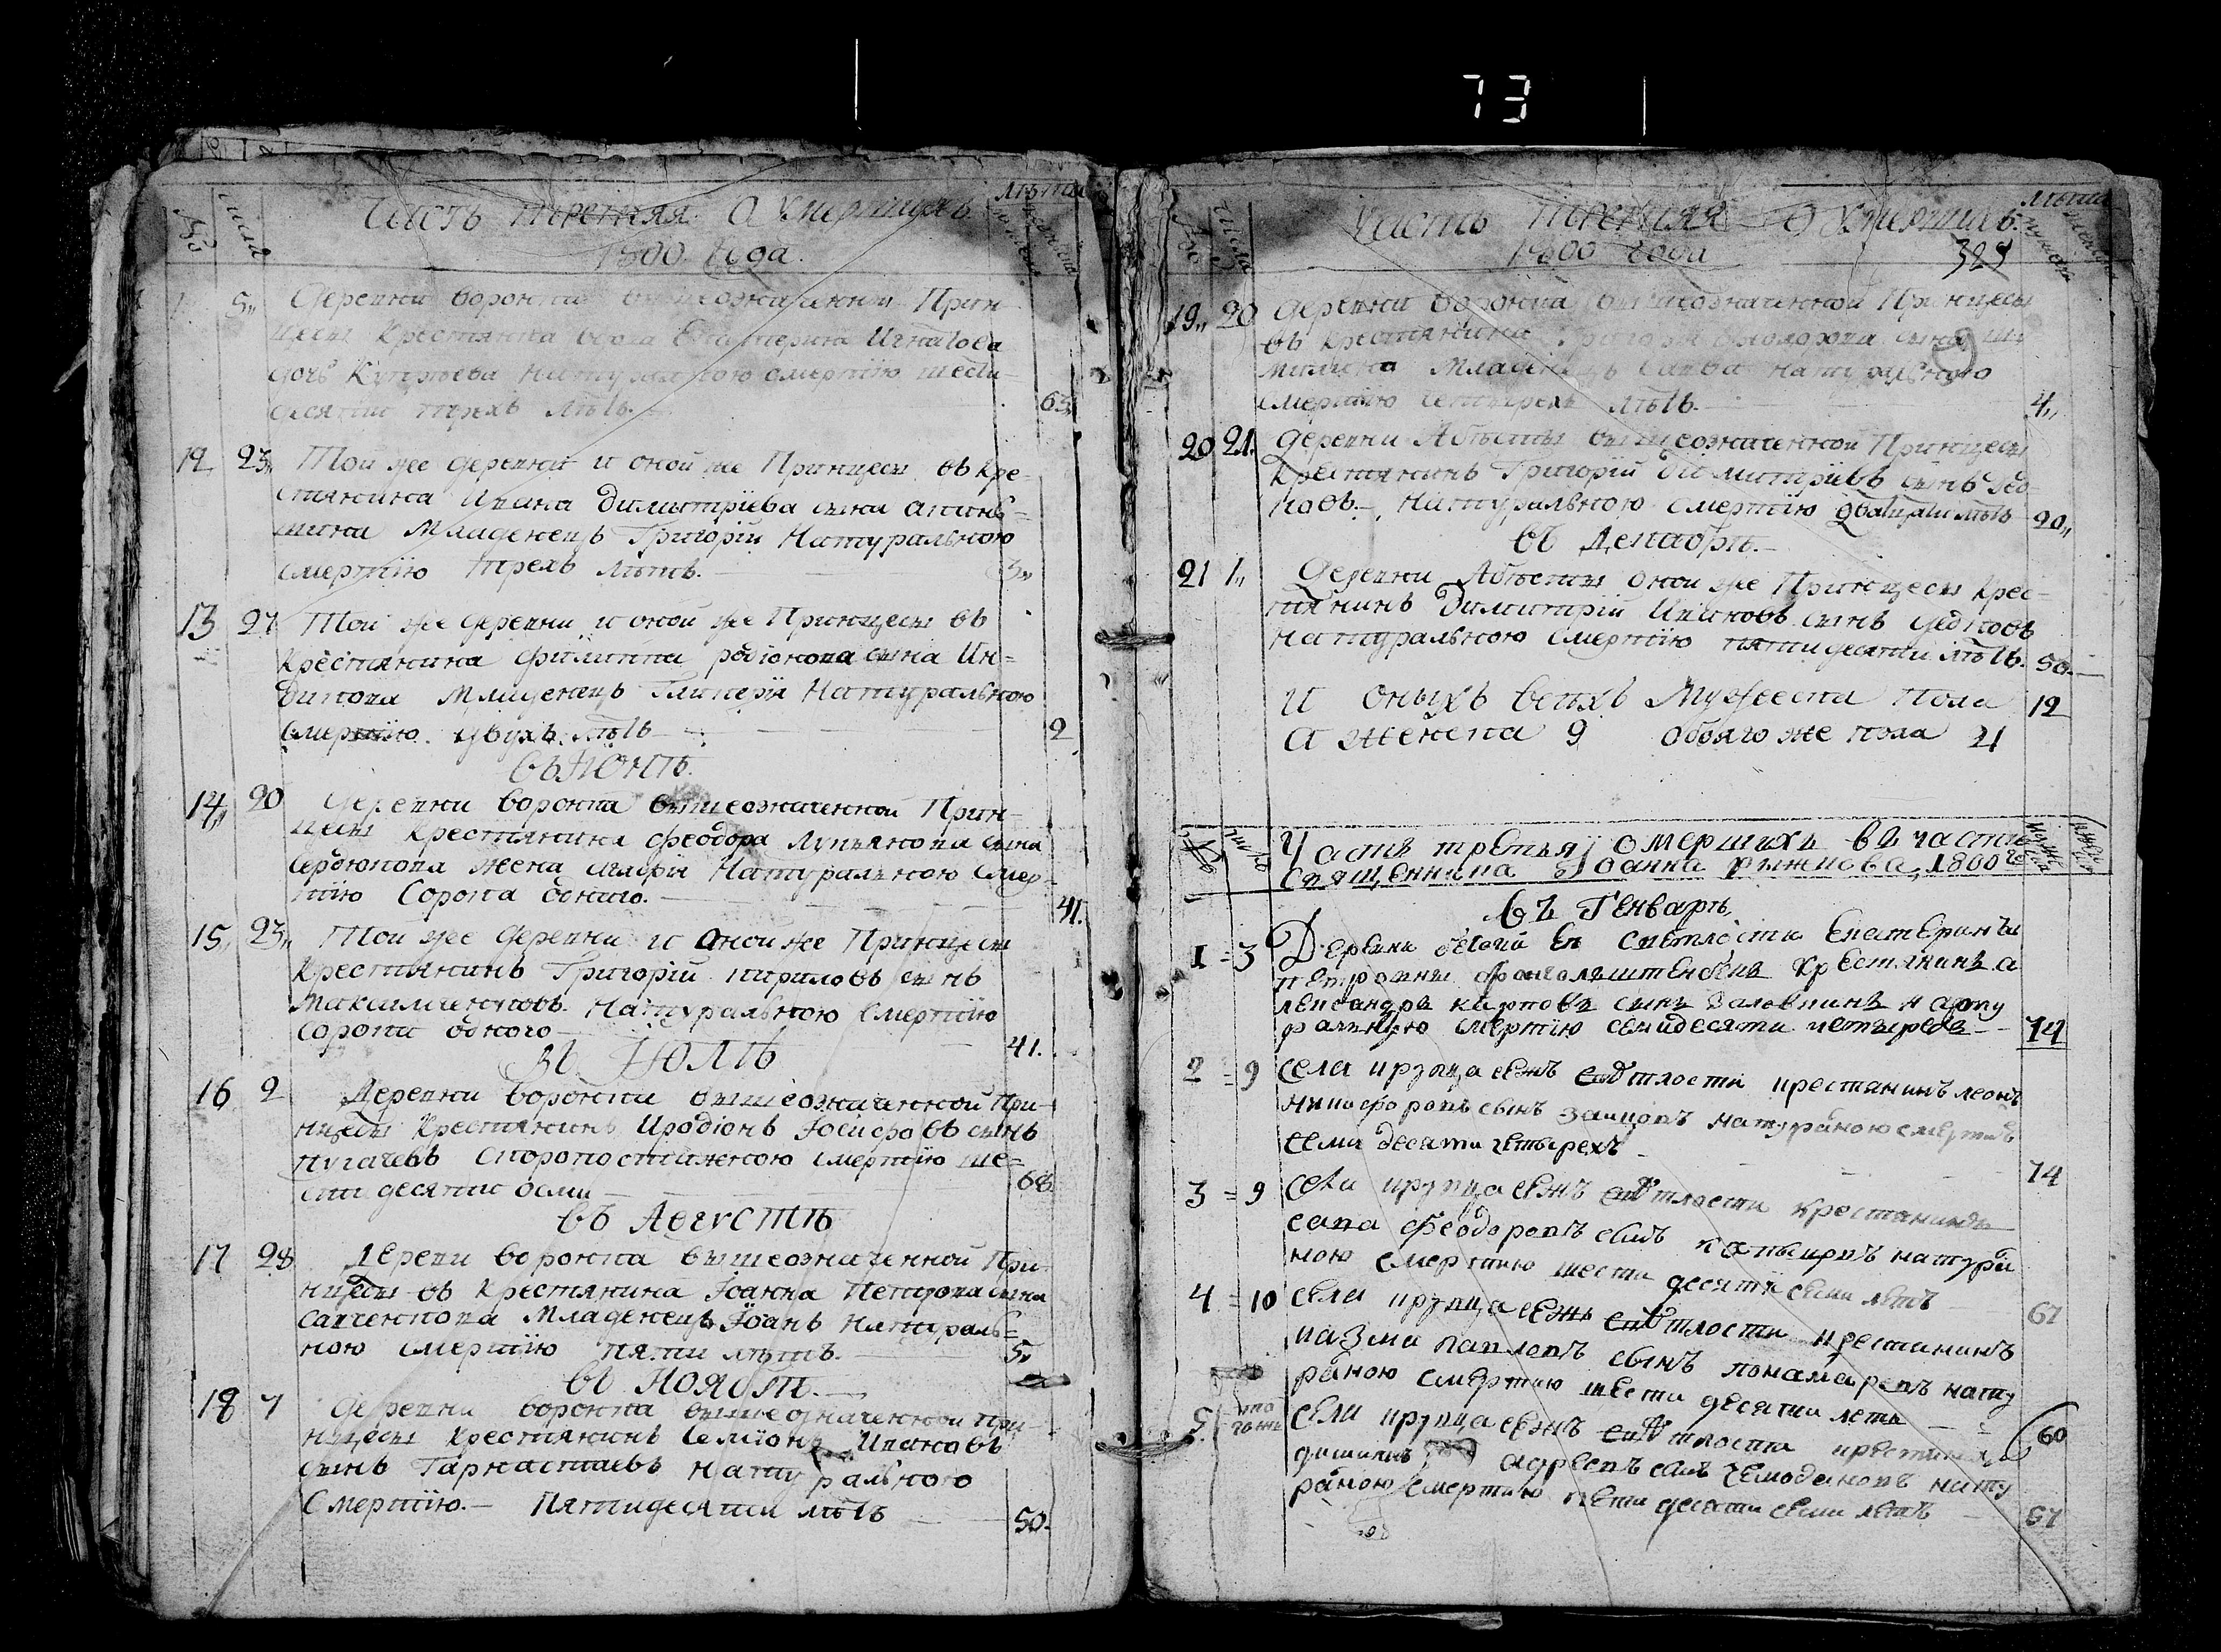 73
№
числа
Часть третяя О Умершихъ
1800 года.
лѣта
5„ Деревни Воронка вышеозначенной Прин
цесы Крестянка вдова Екатерина Игнатова
дочь Натуралною смертію шести
десяти трехъ лѣтъ. 63„
12 23„ Той же деревни и оной же Принцесы въ Кре-
стянина Ивана Димитріева сына
Младенецъ Григорій Натуральною
смертію трехъ лѣтъ. 3„
13 27 Той же деревни и оной же Принцесы въ
Крестянина Филиппа родіонова сына Ин=
дикова Младенецъ Гликерія Натуральною
смертію двухъ лѣтъ 2
въ Іюнѣ.
14„ 20 Деревни Воронка вышеозначенной Прин-
цесы Крестянина Феодора Лукьянова сына
Сердюкова жена Марія Натуральною Смер-
тію Сорока одного. 41.
15„ 23„ Той же Деревни и Оной же Принцесы
Крестянинъ Григорій кириловъ сынъ
Максименковъ Натуральною Смертію
Сорока одного 41.
въ Іюлѣ
16 2 Деревни Воронка вышеозначенной При-
нцесы Крестянинъ Иродіонъ Іосифовъ сынъ
Пугачевъ Скоропостижною смертію ше=
сти десяти осми 68
въ Августѣ
17 28 Деревни Воронка вышеозначенной При-
нцесы въ Крестянина Іоанна Петрова сына
Савченкова Младенецъ Іоанъ Натураль=
ною Смертію пяти лѣтъ. 5„
въ Ноябрѣ.
18 7 Деревни Воронка вышеозначенной При
нцесы Крестянинъ Семіонъ Ивановъ
сынъ Гарнастаевъ Натуральною
Смертію. Пятидесяти лѣтъ 50.
Часть Третяя О Умершихъ.
1800 года
329
лѣта
19„ 20 Деревни Воронка вышеозначенной Принцесы
въ Крестянина Григорія сына
Младенецъ Савва Натуральною
смертію четырехъ лѣтъ. 4„
20 21. Деревни вышеозначенной Принцесы
Крестянинъ Григорій Димитріевъ сынъ Дед
ковъ. Натуральною смертію дватцати лѣтъ 20„
въ Декабрѣ.
21 1„ Деревни оной же Принцесы Крес-
тянинъ Димитрій Ивановъ сынъ Дедковъ
Натуральною Смертію пятидесяти лѣтъ. 50.
И оныхъ всѣхъ Мужеска Пола 12
А женска 9 Обояго же пола 21
Часть третья о мершихъ въ части
Священника Іоанна рыжкова, 1800 го
Въ Генварѣ,
1 = 3 Деревни Ея Светлости Екатерины
Петровны фонголъштенбекъ Крестянинъ а
лександръ карповъ сынъ нату
ралъною смертію семидесяти четырехъ 74
2 = 9 Села крупца Ея Светлости крестянинъ леонъ
никифоровъ сынъ натураною смертію
семи десяти четырехъ 74
3 = 9 Села крупца Ея Светлости крестянинъ
сава Феодоровъ сынъ натура
ною смертию шести десяти семи летъ 67
4 = 10 Села крупца Ея Светлости крестянинъ
казма павловъ сынъ понамаревъ нату
раною смертию шести десяти летъ 60
5. того жъ Села крупца Ея Светлости крестянинъ
андреевъ сынъ чемодановъ нату
раною смертию пети десяти семи летъ 57